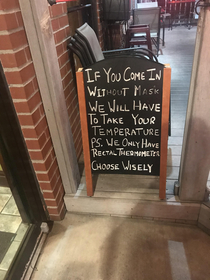 IF YOU COME IN
WITHOUT MASK
WE WILL HAVE
TO TAKE YOUR
TEMPERATURE
PS. WE ONLY HAVE
RECTAL THERMOMETER
CHOOSE WISELY